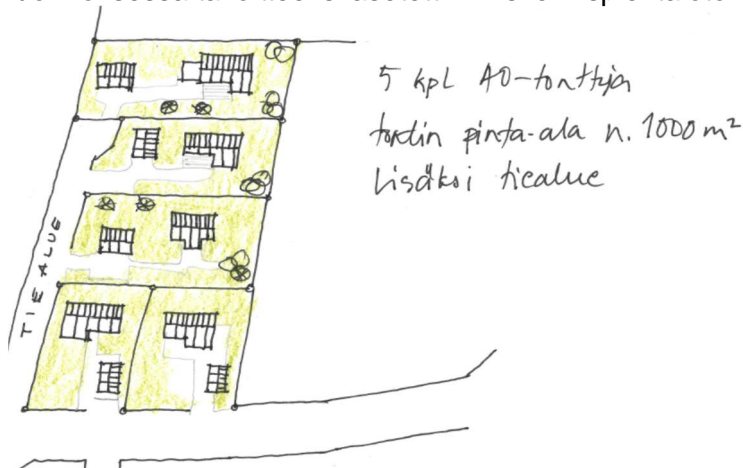 5 kpl AO-tontteja
tontin pinta-ala n. 1000 m²
Lisäksi tiealue
TIEALUE